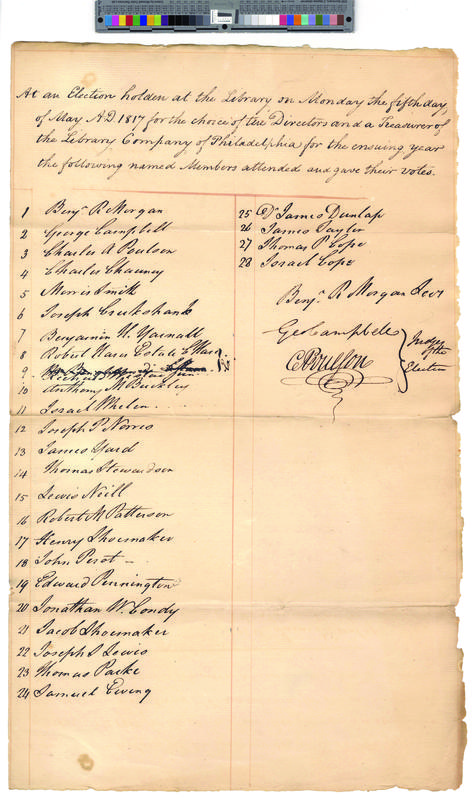 At an Election holden at the Library on Monday the fifth day,
of May A.D. 1817 for the choice of ten Directors and a Treasurer of
the Library Company of Philadelphia for the ensuing year
the following named Members attended and gave their votes.
1 Benjn. R Morgan
2 George Campbell
3 Charles A Poulson
4 Charles Chauncy
5 Morris Smith
6 Joseph Cruikshank
7 Benjamin H. Yarnall
8 Robert Hares Estate
9
10 Anthony M Buckley
11 Israel Whelen
12 Joseph P. Norris
13 James Yard
14 Thomas Stewardson
15 Lewis Neill
16 Robert M Patterson
17 Henry Shoemaker
18 John Perot
19 Edward Pennington
20 Jonathan W. Condy
21 Jacob Shoemaker
22 Joseph S Lewis
23 Thomas Parke
24 Samuel Ewing
25 Dr. James Dunlap
26 James Taylor
27 Thomas P Cope
28 Israel Cope
Benjn. R Morgan
Geo Campbell
CAPoulson
Judges
of the
Election